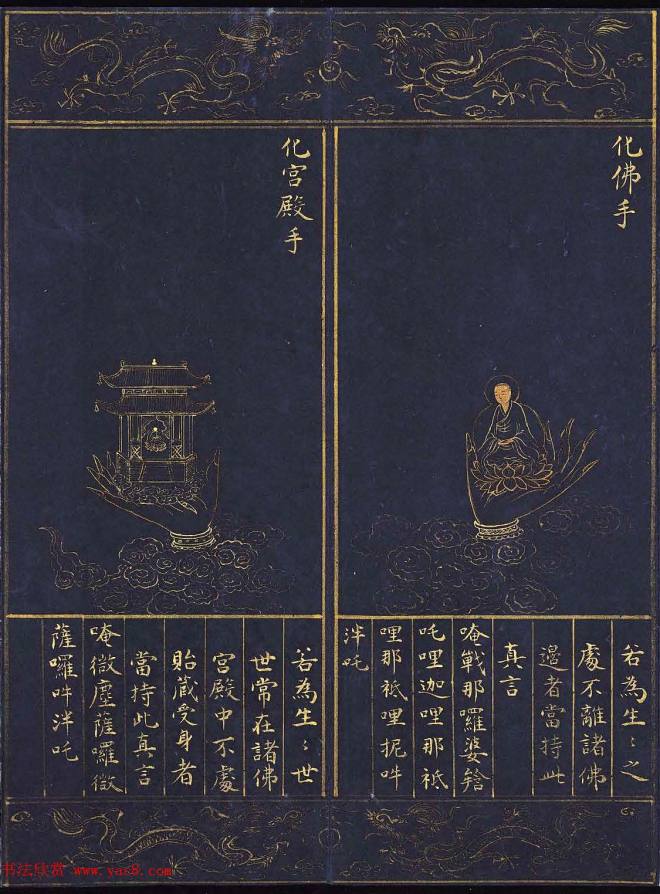 化佛手
若為生〻之
處不離諸佛
邊者當持此
真言
唵戰那羅婆𤚥
吒哩迦哩那祇
哩那祇哩抳吽
泮吒
化宮殿手
若為生〻世
世常在諸佛
宮殿中不處
胎藏受身者
當持此真言
唵微塵薩囉微
薩囉吽泮吒
书法欣赏 www.yac8.com